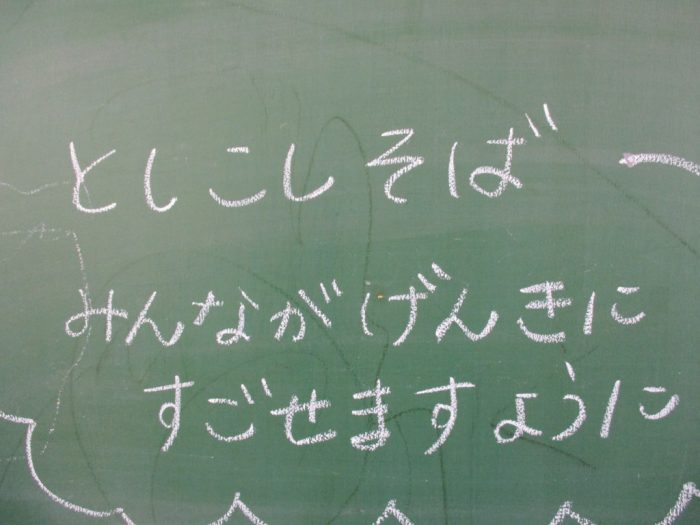 としこしそば
みんながげんきに
すごせますように